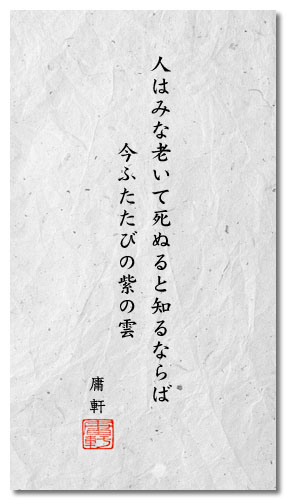 人はみな老いて死ぬると知るならば
今ふたたびの紫の雲
庸軒